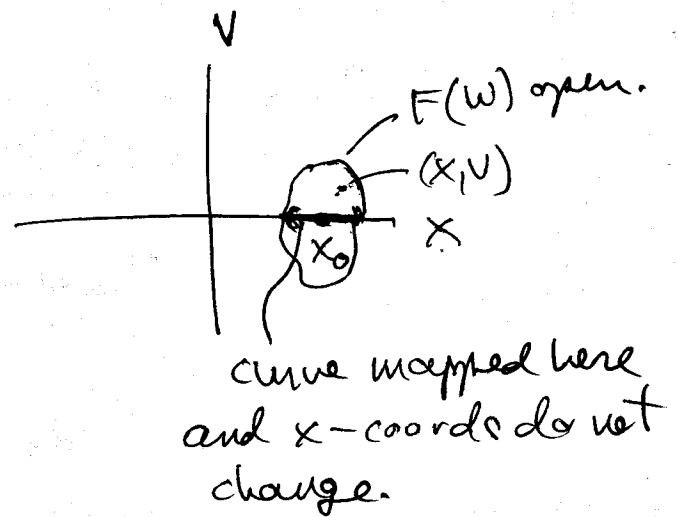 V
F(W) open.
(x,v)
x
x₀
curve mapped here
and x-coords do not
change.